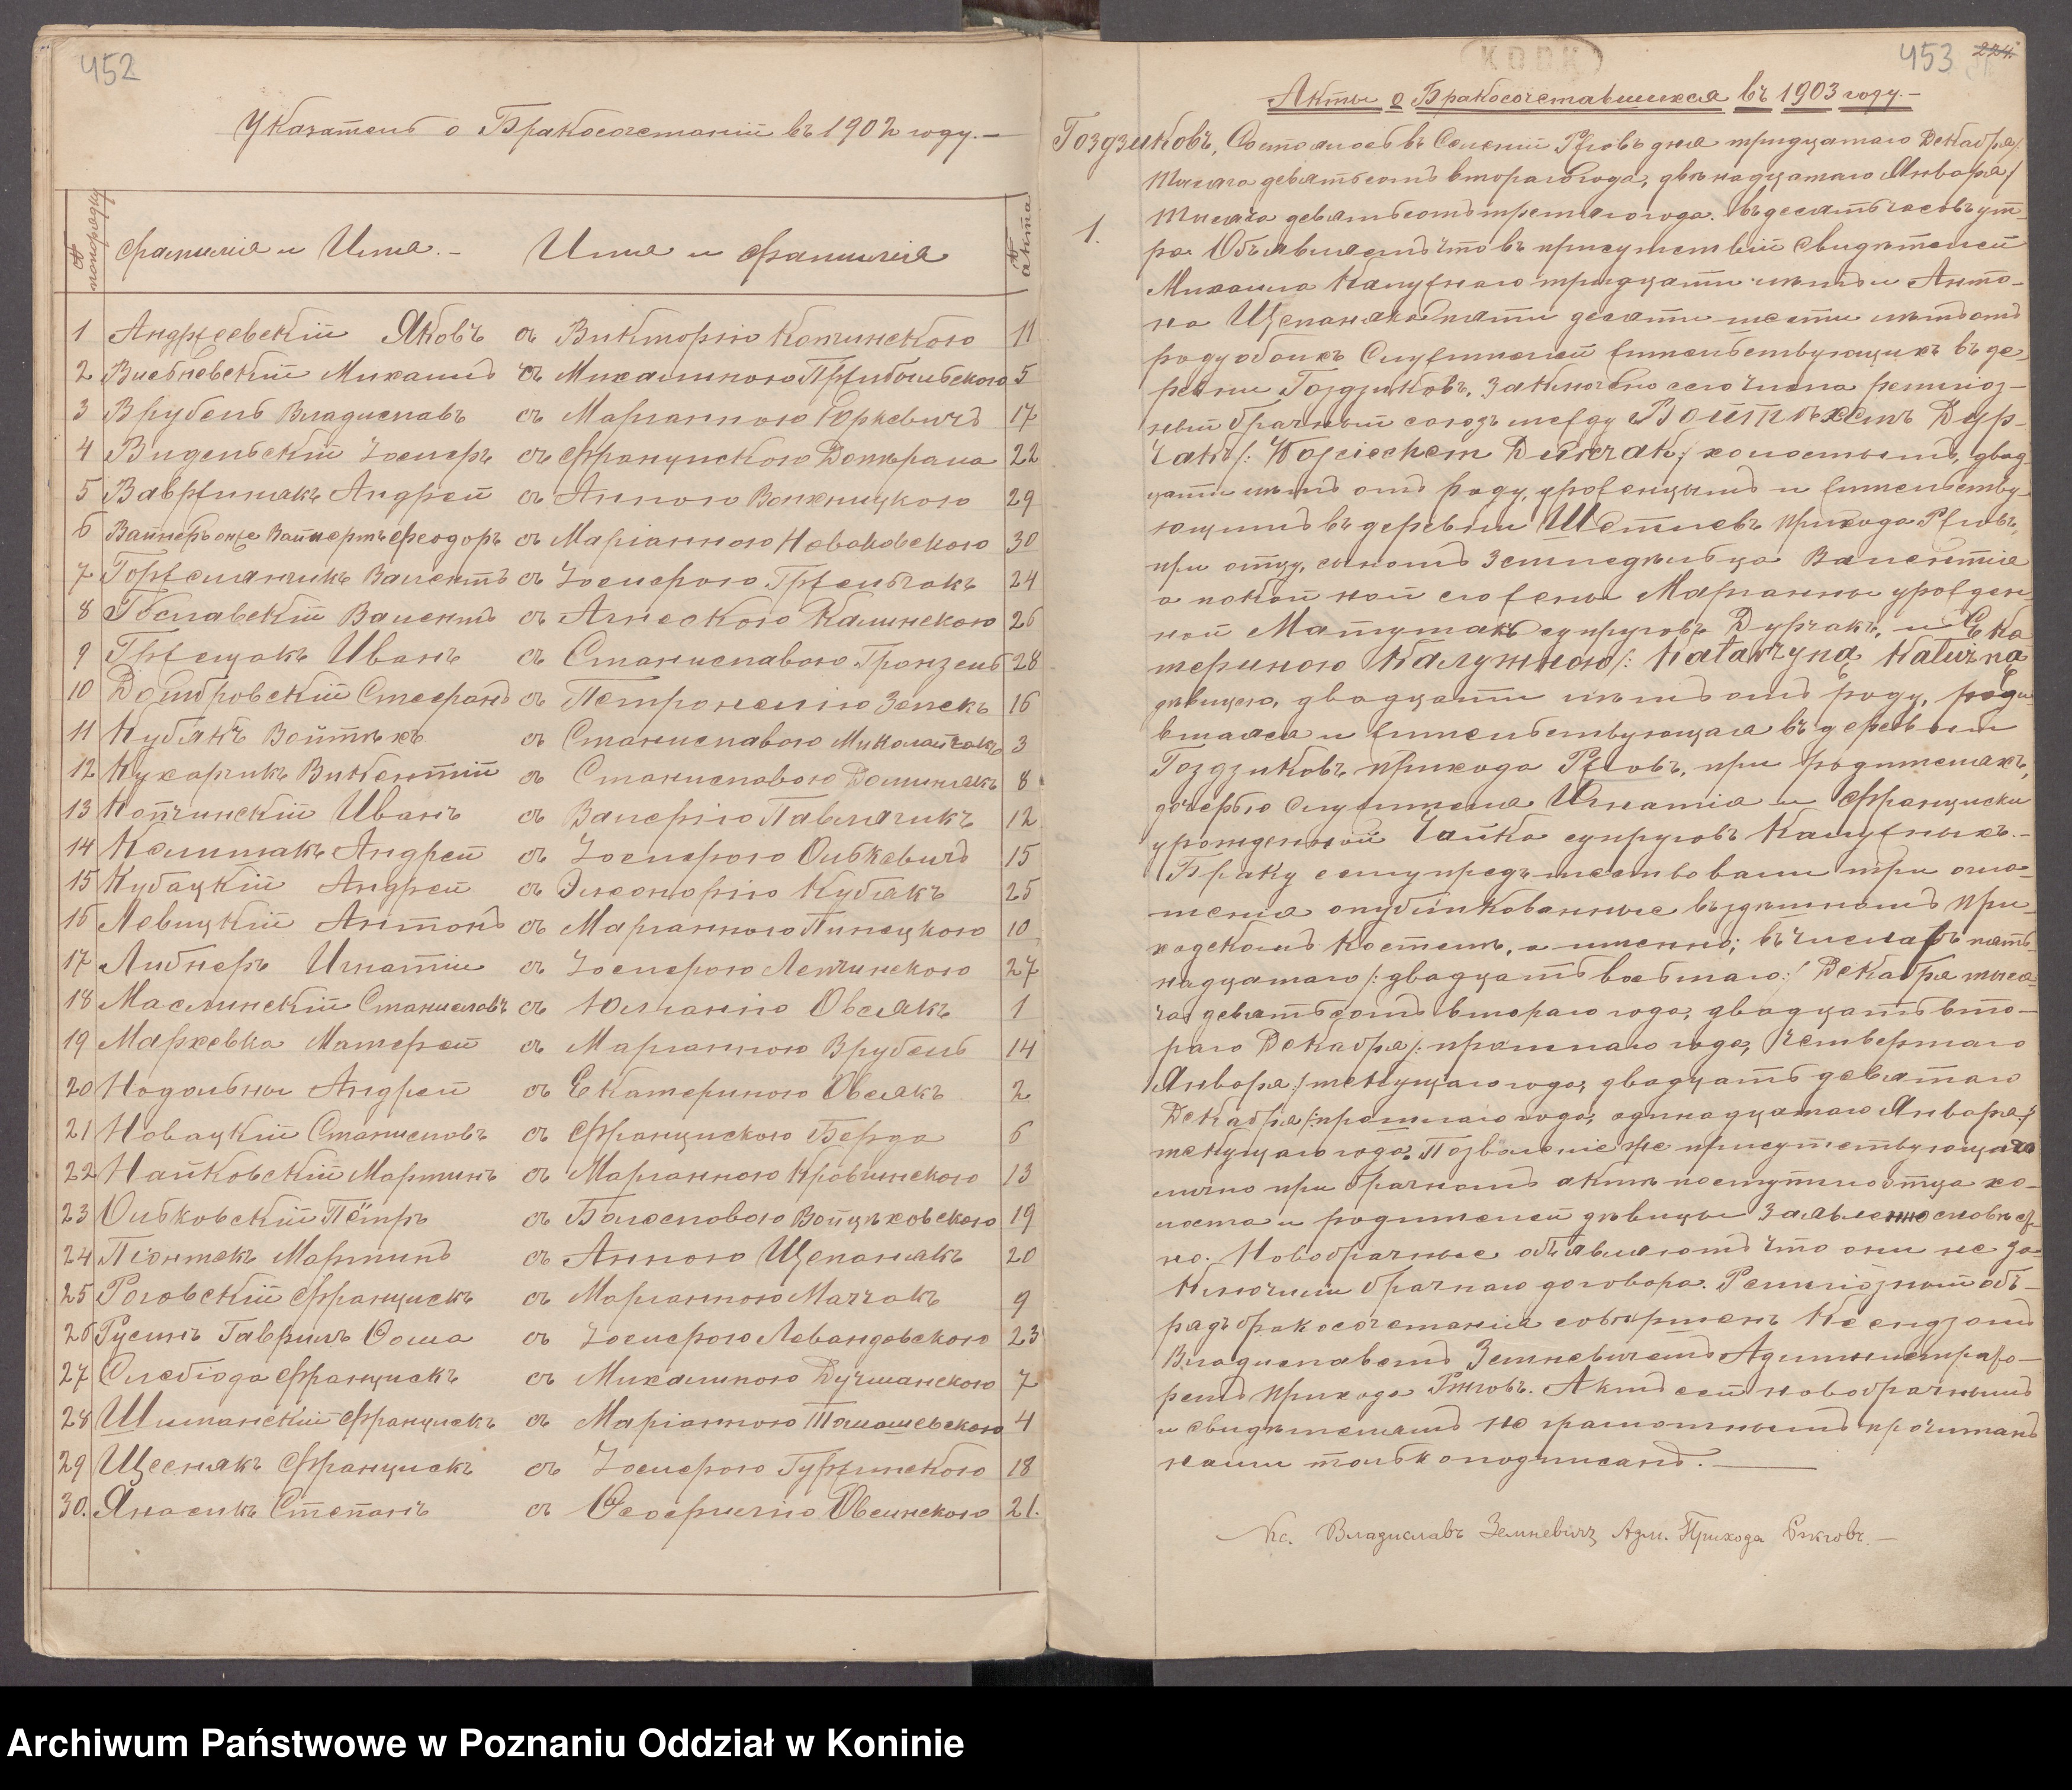 452
Указатель о Бракосочетаній въ 1902 году. —
№ попорядку
Фамилія и Имя. –
Имя и Фамилія
№ акта
1 Андржеевскій Яковъ съ Викторіею Копчинскою 11
2 Висьневскій Михаилъ съ Михалиною Пржибыльскою 5
3 Врубель Владиславъ съ Маріанною Юркевичъ 17
4 Видельскій Іосифъ съ Францишкою 22
5 Вавржинякъ Андрей съ Анною 29
6 Вайнеръ онже Вайнертъ Феодоръ съ Маріанною Новаковскою 30
7 Горжелянчикъ Валентъ съ Іосифою Гржельчакъ 24
8 Гославскій Валентъ съ Агнешкою Калинскою 26
9 Гржещакъ Иванъ съ Станиславою 28
10 Домбровскій Стефанъ съ Петронелію Зепекъ 16
11 Кубякъ Войтѣхъ съ Станиславою Миколайчакъ 3
12 Кухарчикъ Викентій съ Станиславою Доминякъ 8
13 Копчинскій Иванъ съ Валеріею Павлячикъ 12
14 Андрей съ Іосифою Олькевичъ 15
15 Кубацкій Андрей съ Элеонорію Кубякъ 25
16 Левицкій Антонъ съ Маріанною Пилецкою 10
17 Либнеръ Игнатій съ Іосифою Лепчинскою 27
18 Маслинскій Станиславъ съ Юліанію Овсякъ 1
19 Мархевка Матфей съ Маріанною Врубель 14
20 Надольны Андрей съ Екатериною Овсякъ 2
21 Новацкій Станиславъ съ Францишкою Берда 6
22 Найковскій Мартинъ съ Маріанною Кровинскою 13
23 Олбковскій Пётръ съ Болеславою Войцѣховскою 19
24 Піонтекъ Мартинъ съ Анною Щепанякъ 20
25 Роговскій Францискъ съ Маріанною Матчакъ 9
26 Русинъ Гавріилъ Фома съ Іосифою Левандовскою 23
27 Слебіода Францискъ съ Михалиною Дучманскою 7
28 Шиманскій Францискъ съ Маріанною Томашевскою 4
29 Щеснякъ Францискъ съ Іосифою Гуржинскою 18
30. Яносикъ Степанъ съ Ѳеофилію Овсинскою 21.
453
Акты о Бракосочетавшихся въ 1903 году. –
Гоздзиковъ,
1.
Состоялось въ Селеніи Ржговъ дня тридцатаго Декабря
тысяча девятьсотъ второго года, двѣнадцатаго Января/
тысяча девятьсотъ третяго года. въ десять часовъ ут-
ра Объявляемъ что въ присутствіи свидѣтелей
Михаила Калужнаго тридцати лѣтъ и Анто-
на Щепаняка пяти десяти шести лѣтъ отъ
роду обоихъ Служителей жительствующихъ въ де-
ревни Гоздзиковъ, заключенъ сего числа религіоз-
ный брачный союзъ между Войтѣхемъ Дур-
чакъ /: Wojciechem Durczak :/ холостымъ, двад-
цати лѣтъ отъ роду, урожденцымъ и жительству-
ющимъ въ деревни Шетлевъ прихода Ржговъ,
при отцу, сыномъ Земледѣльца Валентія
а покойной его жены Маріанны урожден-
ной Матушакъ супруговъ Дурчакъ, и Ека-
териною Калужною /: Katarzyna Kałużna
дѣвицею, двадцати лѣтъ отъ роду, роди-
вшаяся и жительствующая въ деревни
Гоздзиковъ прихода Ржговъ, при родителяхъ,
дочерью Служителя Игнатія и Францишки
урожденной Чайка супруговъ Калужныхъ. –
Браку сему предшествовали три огла-
шенія опубликованные въ здѣшномъ при-
ходскомъ костелѣ, а именно; въ числахъ пять-
надцатаго /: двадцать восьмаго :/ Декабря тыся-
ча девятьсотъ втораго года, двадцать вто-
раго Декабря /: прошлаго года, четвертаго
Января :/ текущаго года, двадцать девятаго
Декабря /: прошлаго года, одинадцатаго Января :/
текущаго года. Позволеніе же присутствующаго
лично при брачномъ актѣ отца хо-
лоста и родителей дѣвицы
но. Новобрачные объявляютъ что они не за-
ключили брачнаго договора. Религіозный об-
рядъ бракосочетанія совершенъ Ксендзомъ
Владиславемъ Земневичемъ Администрато-
ремъ прихода Ржговъ. Актъ сей новобрачнымъ
и свидѣтелямъ не грамотнымъ прочитанъ
нами только подписанъ. —
Кс. Владиславъ Земневичъ Адм. Прихода Ржговъ. –
Archiwum Państwowe w Poznaniu Oddział w Koninie